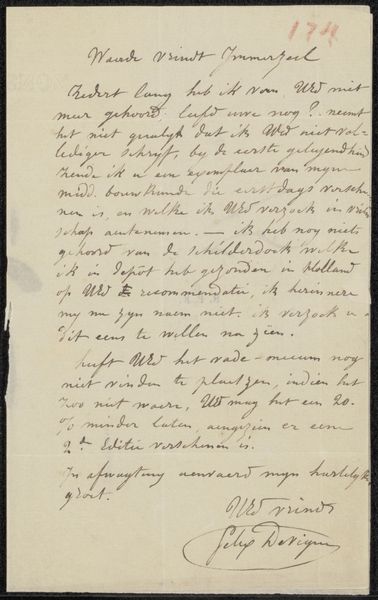 174
Waarde vrindt Immerzeel
Zedert lang heb ik van UEd niet
meer gehoord; leefd uwe nog? neemt
het niet qualyk dat ik UEd niet vol-
lediger schryf, by de eerste gelegendheid
zende ik u een exemplaer van myne
midd. bouwkunde die eerstdaags versche-
nen is, en welke ik UEd verzoek in vriend
schap aentenemen. — ik heb nog niet
gehoord van de schilderdoek welke
ik in depot heb gezonden in Holland
op UEd recommendatie, ik herinnere
my nu zyn naem niet. ik verzoek u
dit eens te willen na zien.
heeft UEd het vade-mecum nog
niet vinden te plaetzen, indien het
zoo niet waere, UEd mag het een 20.
% minder laten, aengezien er eene
2de Editie verschenen is.
In afwagting aenvaerd myn hartelyke
groet.
UEd vriend
Felix DeVigne